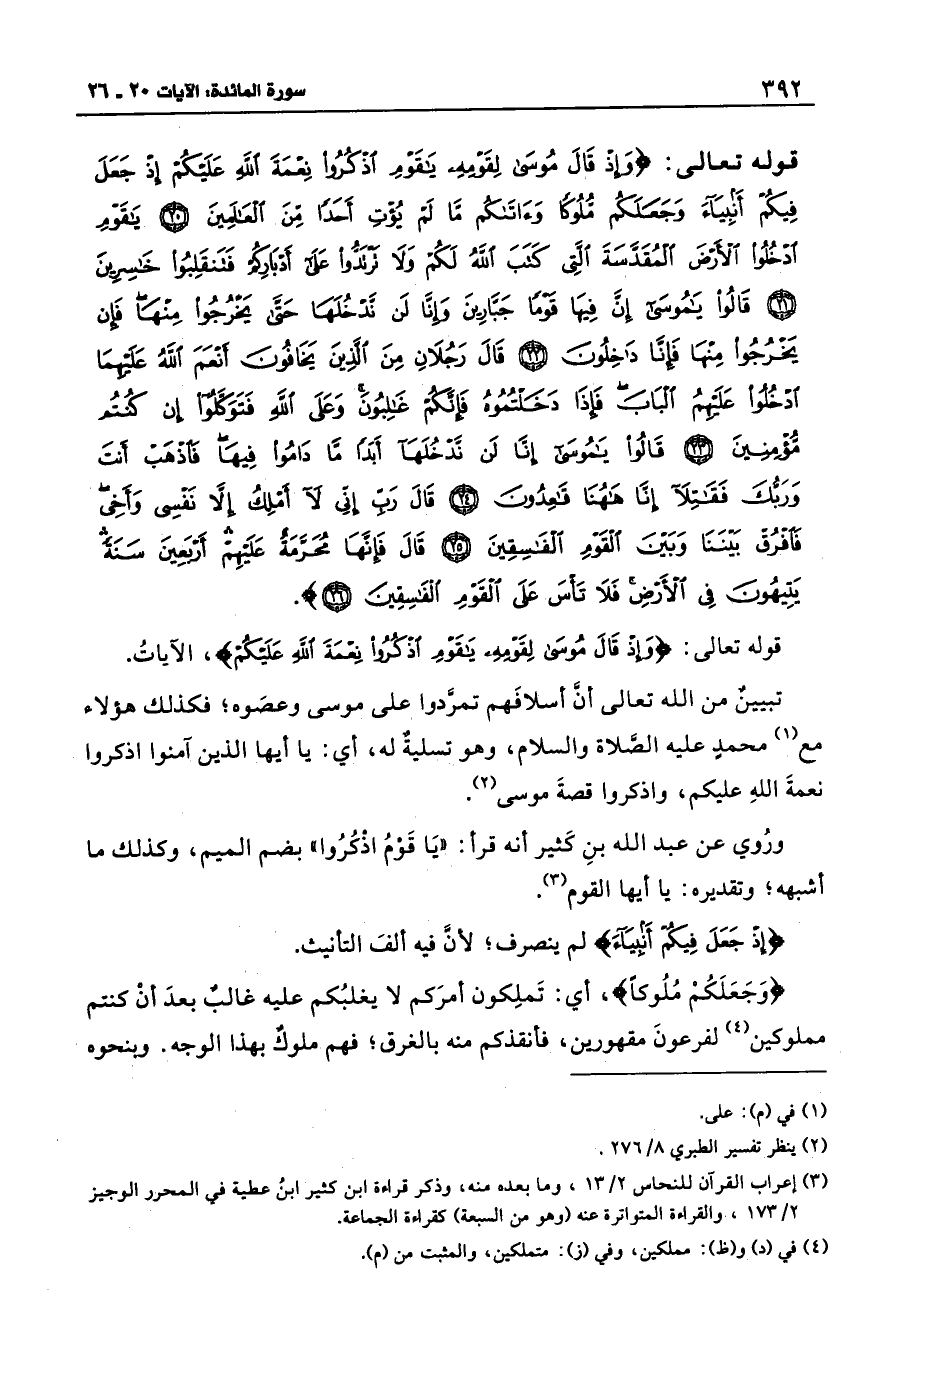 ٣٩٢ سورة المائدة: الآيات ٢٠ ـ ٢٦
قوله تعالى: ﴿وَإِذْ قَالَ مُوسَىٰ لِقَوْمِهِۦ يَٰقَوْمِ ٱذْكُرُوا۟ نِعْمَةَ ٱللَّهِ عَلَيْكُمْ إِذْ جَعَلَ
فِيكُمْ أَنۢبِيَآءَ وَجَعَلَكُم مُّلُوكًا وَءَاتَىٰكُم مَّا لَمْ يُؤْتِ أَحَدًا مِّنَ ٱلْعَٰلَمِينَ ٢٠ يَٰقَوْمِ
ٱدْخُلُوا۟ ٱلْأَرْضَ ٱلْمُقَدَّسَةَ ٱلَّتِى كَتَبَ ٱللَّهُ لَكُمْ وَلَا تَرْتَدُّوا۟ عَلَىٰٓ أَدْبَارِكُمْ فَتَنقَلِبُوا۟ خَٰسِرِينَ
٢١ قَالُوا۟ يَٰمُوسَىٰٓ إِنَّ فِيهَا قَوْمًا جَبَّارِينَ وَإِنَّا لَن نَّدْخُلَهَا حَتَّىٰ يَخْرُجُوا۟ مِنْهَا ۖ فَإِن
يَخْرُجُوا۟ مِنْهَا فَإِنَّا دَٰخِلُونَ ٢٢ قَالَ رَجُلَانِ مِنَ ٱلَّذِينَ يَخَافُونَ أَنْعَمَ ٱللَّهُ عَلَيْهِمَا
ٱدْخُلُوا۟ عَلَيْهِمُ ٱلْبَابَ ۖ فَإِذَا دَخَلْتُمُوهُ فَإِنَّكُمْ غَٰلِبُونَ ۚ وَعَلَى ٱللَّهِ فَتَوَكَّلُوٓا۟ إِن كُنتُم
مُّؤْمِنِينَ ٢٣ قَالُوا۟ يَٰمُوسَىٰٓ إِنَّا لَن نَّدْخُلَهَآ أَبَدًا مَّا دَامُوا۟ فِيهَا ۖ فَٱذْهَبْ أَنتَ
وَرَبُّكَ فَقَٰتِلَآ إِنَّا هَٰهُنَا قَٰعِدُونَ ٢٤ قَالَ رَبِّ إِنِّى لَآ أَمْلِكُ إِلَّا نَفْسِى وَأَخِى ۖ
فَٱفْرُقْ بَيْنَنَا وَبَيْنَ ٱلْقَوْمِ ٱلْفَٰسِقِينَ ٢٥ قَالَ فَإِنَّهَا مُحَرَّمَةٌ عَلَيْهِمْ ۛ أَرْبَعِينَ سَنَةً ۛ
يَتِيهُونَ فِى ٱلْأَرْضِ ۚ فَلَا تَأْسَ عَلَى ٱلْقَوْمِ ٱلْفَٰسِقِينَ ٢٦﴾.
قوله تعالى: ﴿وَإِذْ قَالَ مُوسَىٰ لِقَوْمِهِۦ يَٰقَوْمِ ٱذْكُرُوا۟ نِعْمَةَ ٱللَّهِ عَلَيْكُمْ﴾، الآياتُ.
تبيينٌ من الله تعالى أنَّ أسلافَهم تمرَّدوا على موسى وعصَوه؛ فكذلك هؤلاء
مع(١) محمدٍ عليه الصَّلاة والسلام، وهو تسليةٌ له، أي: يا أيها الذين آمنوا اذكروا
نعمةَ اللهِ عليكم، واذكروا قصةَ موسى(٢).
ورُوي عن عبد الله بنِ كَثير أنه قرأ: «يَا قَوْمُ اذْكُرُوا» بضم الميم، وكذلك ما
أشبهه؛ وتقديره: يا أيها القوم(٣).
﴿إِذْ جَعَلَ فِيكُمْ أَنۢبِيَآءَ﴾ لم ينصرف؛ لأنَّ فيه ألفَ التأنيث.
﴿وَجَعَلَكُمْ مُلُوكاً﴾، أي: تَملِكون أمرَكم لا يغلبُكم عليه غالبٌ بعدَ أنْ كنتم
مملوكين(٤) لفرعونَ مقهورين، فأنقذكم منه بالغرق؛ فهم ملوكٌ بهذا الوجه. وبنحوه
(١) في (م): على.
(٢) ينظر تفسير الطبري ٨/ ٢٧٦ .
(٣) إعراب القرآن للنحاس ٢/ ١٣ ، وما بعده منه، وذكر قراءة ابن كثير ابنُ عطية في المحرر الوجيز
٢/ ١٧٣ ، والقراءة المتواترة عنه (وهو من السبعة) كقراءة الجماعة.
(٤) في (د) و(ظ): مملكين، وفي (ز): متملكين، والمثبت من (م).